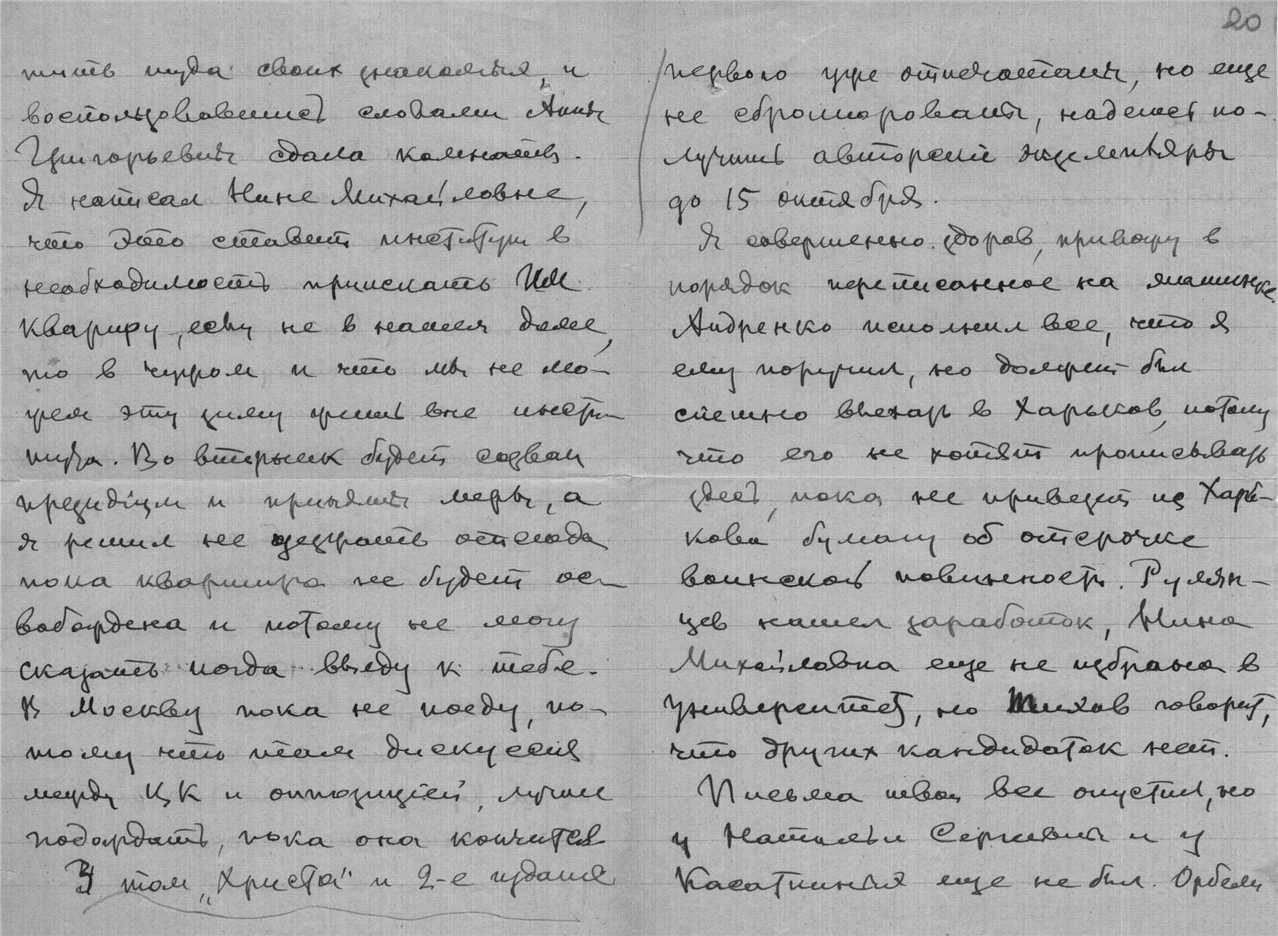 20
тить туда своих знакомых, и
воспользовавшись словами Анны
Григорьевны сдала комнаты.
Я написал Нине Михайловне,
что это ставит институт в
необходимость приискать им
квартиру, если не в нашем доме,
то в чужом и что мы не мо-
жем эту зиму жить вне инсти-
тута. Во вторник будет созван
президиум и приняты меры, а
я решил не уезжать отсюда
пока квартира не будет ос-
вобождена и потому не могу
сказать когда выеду к тебе.
В Москву пока не поеду, по-
тому что там дискуссия
между ЦК и оппозицией, лучше
подождать, пока она кончится
3 том „Христа" и 2-е издание
первого уже отпечатаны, но еще
не сброшюрованы, надеюсь по-
лучить авторские экземпляры
до 15 октября.
Я совершенно здоров, привожу в
порядок переписанное на машинке.
Андренко исполнил все, что я
ему поручил, но должен был
спешно выехать в Харьков, потому
что его не хотят прописывать
здесь, пока не привезет из Харь-
кова бумагу об отсрочке
воинской повинности. Румян-
цев нашел заработок, Нина
Михайловна еще не избрана в
Университет, но Тихов говорит,
что других кандидаток нет.
Письма твои все опустил, но
у Натальи Сергеевны и у
Касаткиных еще не был. Орбели